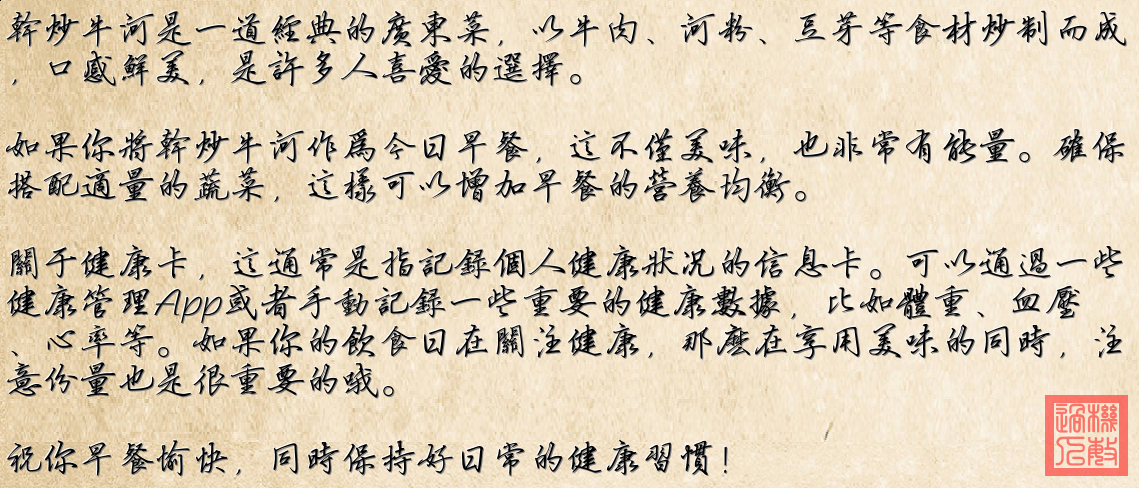 幹炒牛河是一道經典的廣東菜，以牛肉、河粉、豆芽等食材炒制而成
，口感鮮美，是許多人喜愛的選擇。
如果你將幹炒牛河作爲今日早餐，這不僅美味，也非常有能量。確保
搭配適量的蔬菜，這樣可以增加早餐的營養均衡。
關于健康卡，這通常是指記錄個人健康狀况的信息卡。可以通過一些
健康管理App或者手動記錄一些重要的健康數據，比如體重、血壓
、心率等。如果你的飲食日在關注健康，那麽在享用美味的同時，注
意份量也是很重要的哦。
祝你早餐愉快，同時保持好日常的健康習慣！